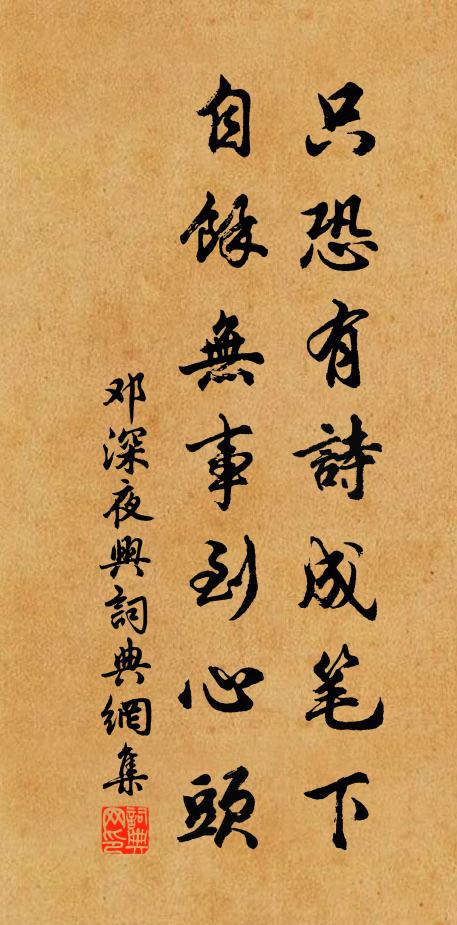 只恐有詩成笔下
自餘無事到心頭
邓深夜興詞典網集
詞典网印